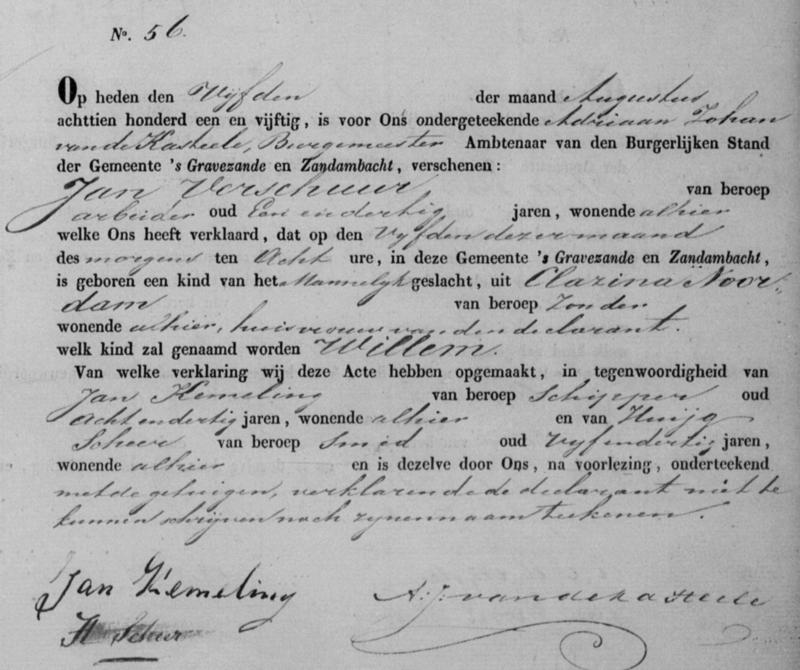 No. 56.
Op heden den Vijfden der maand Augustus
achttien honderd een en vijftig, is voor Ons ondergeteekende Adriaan Johan
van de Kasteele, Burgemeester Ambtenaar van den Burgerlijken Stand
der Gemeente 's Gravezande en Zandambacht, verschenen:
Jan Verschuur van beroep
arbeider oud Een en dertig jaren, wonende alhier
welke Ons heeft verklaard, dat op den Vyfden dezer maand
des morgens ten Acht ure, in deze Gemeente 's Gravezande en Zandambacht,
is geboren een kind van het Mannelyk geslacht, uit Clazina Noor-
dam van beroep Zonder
wonende alhier, huisvrouw van den declarant.
welk kind zal genaamd worden Willem.
Van welke verklaring wij deze Acte hebben opgemaakt, in tegenwoordigheid van
Jan Kemeling van beroep Schipper oud
Acht en dertig jaren, wonende alhier en van Huijg
Scheer van beroep Smid oud Vyf en dertig jaren,
wonende alhier en is dezelve door Ons, na voorlezing, onderteekend
met de getuigen, verklarende de declarant niet te
kunnen schrijven noch zynen naam teekenen.
Jan Kemeling A. J. van de Kasteele
H Scheer